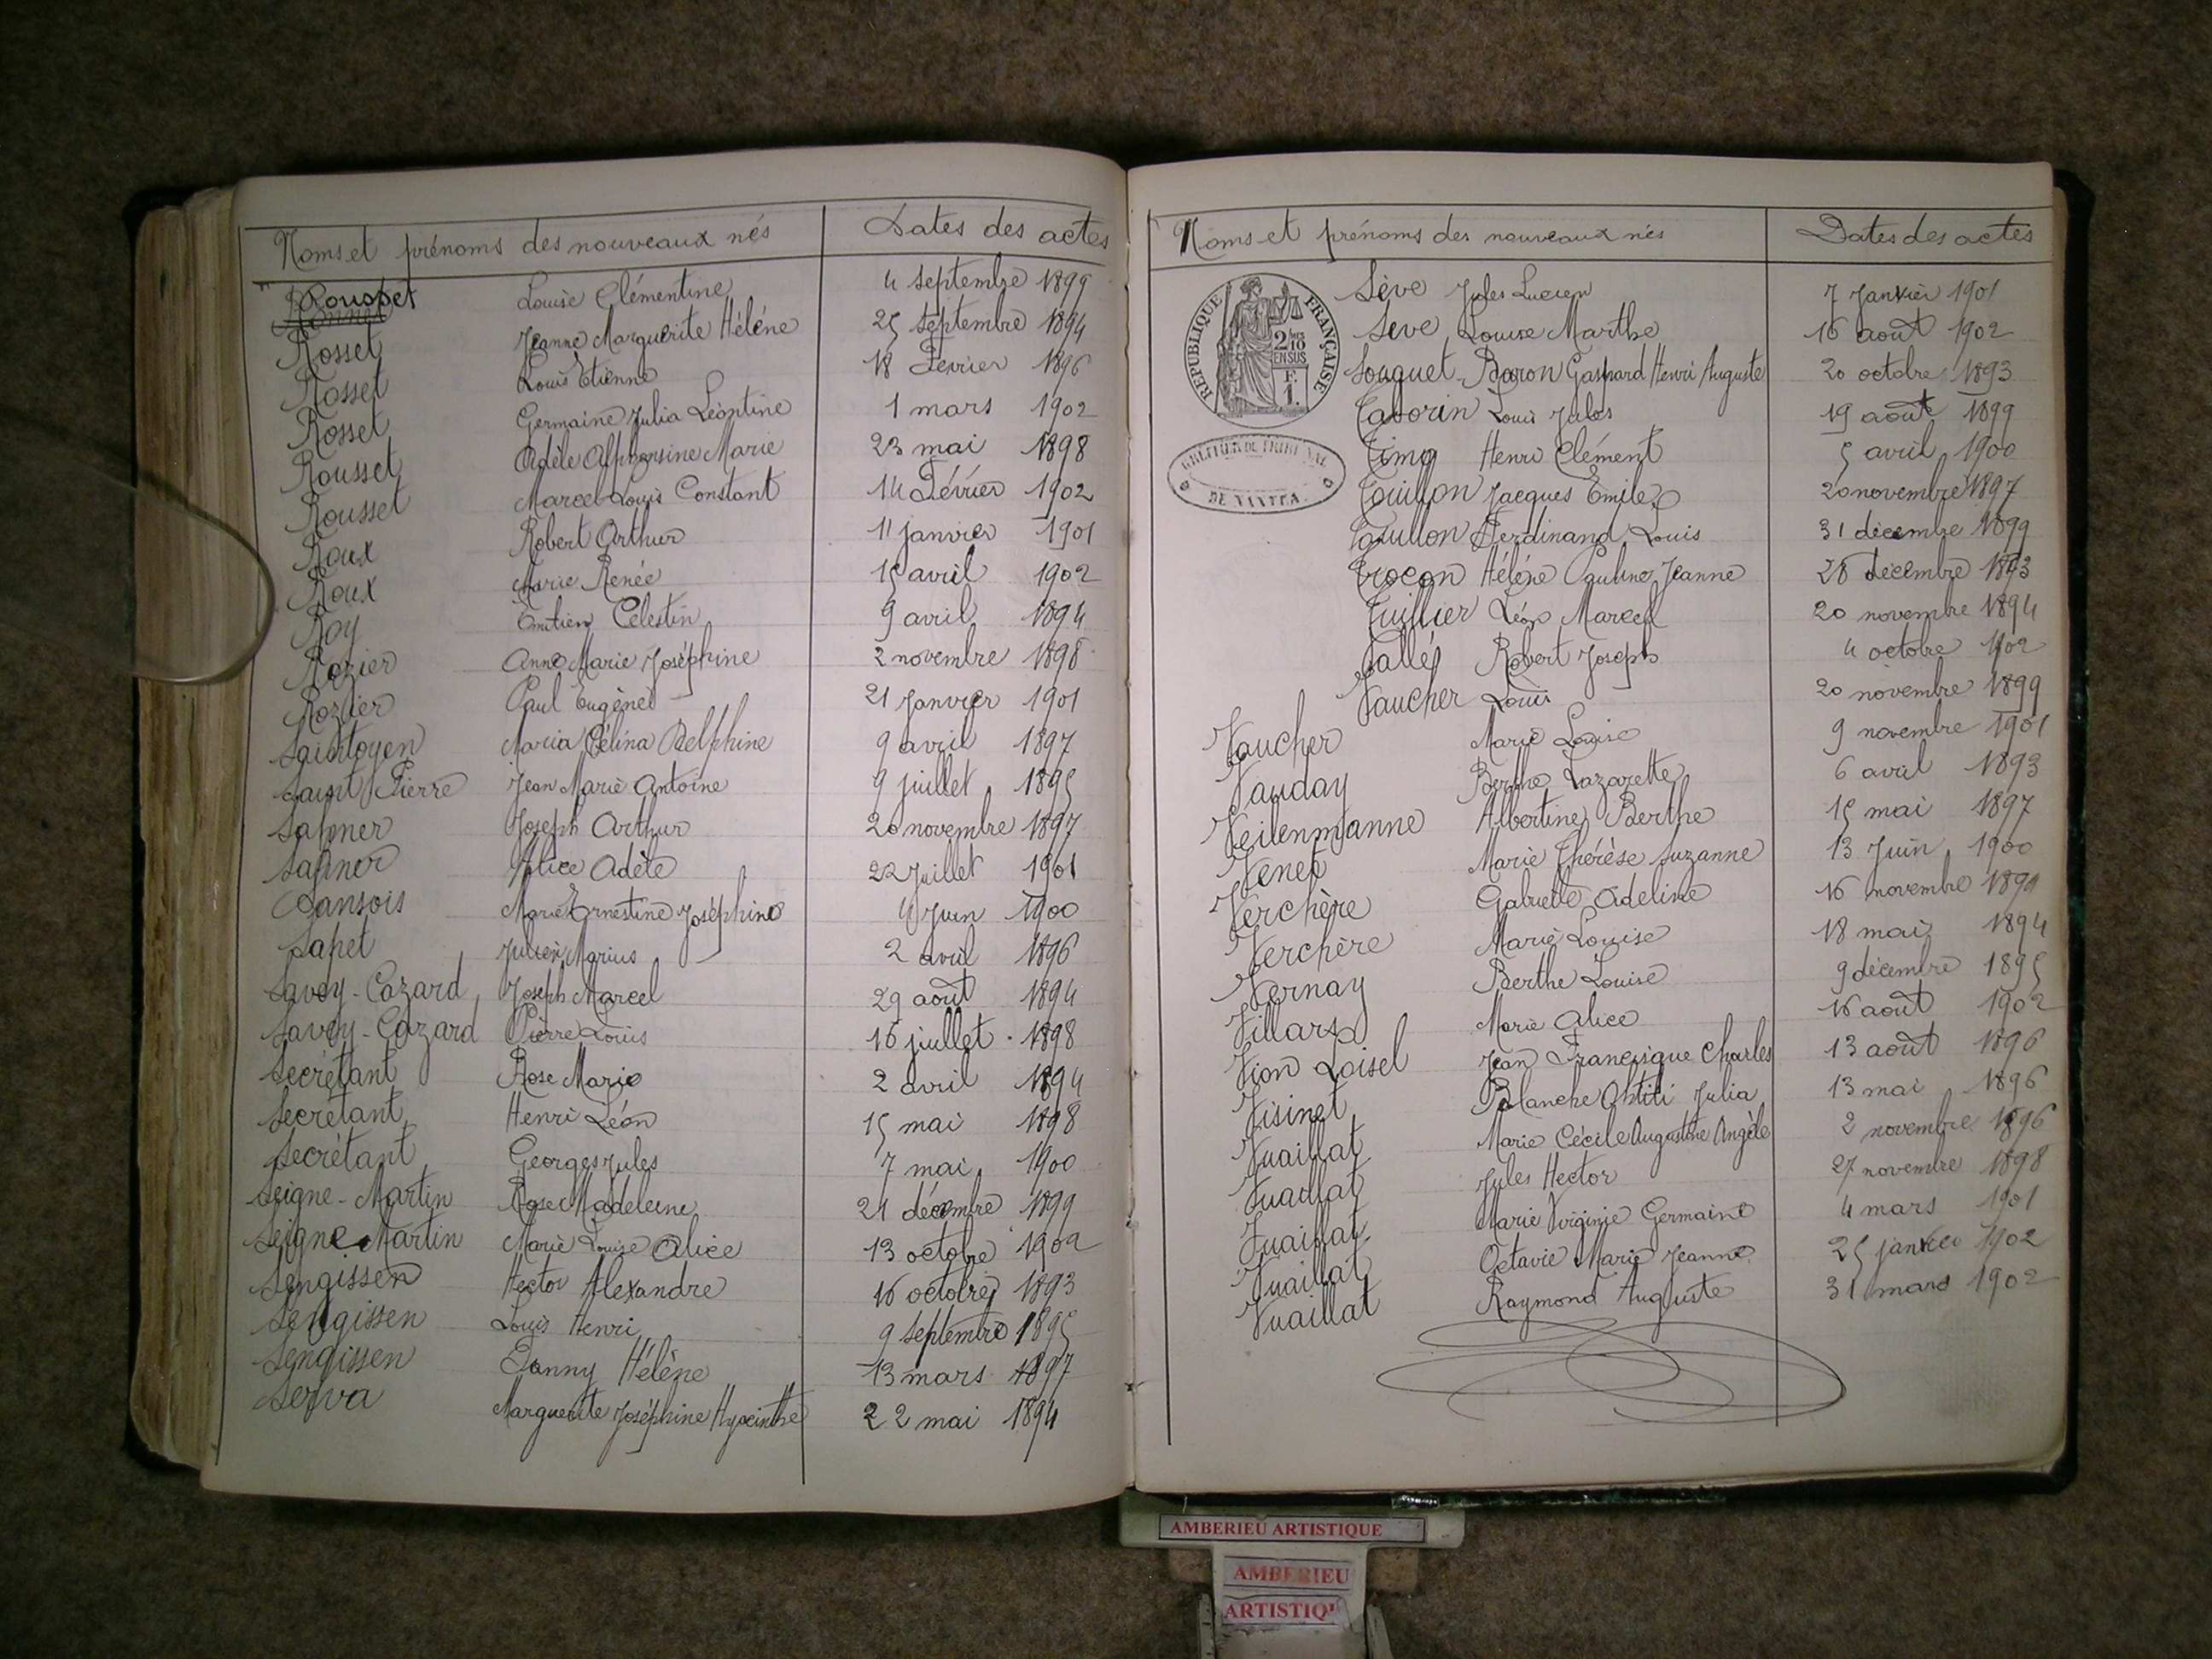 Noms et prénoms des nouveaux nés Dates des actes
Rousset Louise Clémentine 4 septembre 1899
Rosset Jeanne Marguerite Hélène 25 septembre 1894
Rosset Louis Etienne 18 Février 1896
Rosset Germaine Julia Léontine 1 mars 1902
Rousset Adèle Alphonsine Marie 23 mai 1898
Rousset Marcel Louis Constant 14 Février 1902
Roux Robert Arthur 11 janvier 1901
Roux Marie Renée 15 avril 1902
Roy Célestin 9 avril 1894
Rozier Anne Marie Joséphine 2 novembre 1898
Rozier Paul Eugène 21 Janvier 1901
Saintoyen Maria Célina Delphine 9 avril 1897
Saint Pierre Jean Marie Antoine 9 juillet 1895
Joseph Arthur 20 novembre 1897
Alice Adèle 22 Juillet 1901
Sansois Marie Ernestine Joséphine 4 Juin 1900
Sapet Julien Marius 2 avril 1896
Savey-Cazard Joseph Marcel 29 août 1894
Savey-Cazard Pierre Louis 16 juillet 1898
Secrétant Rose Marie 2 avril 1894
Secrétant Henri Léon 15 mai 1898
Secrétant Georges Jules 7 mai 1900
Seigne-Martin Rose Madeleine 21 décembre 1899
Seigne-Martin Marie Louise Alice 13 octobre 1902
Sengissen Hector Alexandre 16 octobre 1893
Sengissen Louis Henri 9 septembre 1895
Sengissen Fanny Hélène 13 mars 1897
Serva Marguerite Joséphine Hyacinthe 22 mai 1894
Noms et prénoms des nouveaux nés Dates des actes
REPUBLIQUE FRANÇAISE
2/10 EN SUS
F. 1.
GREFFIER DU TRIBUNAL
DE NANTUA
Sève Jules Lucien 7 Janvier 1901
Seve Louise Marthe 16 août 1902
Souquet-Baron Gaspard Henri Auguste 20 octobre 1893
Taborin Louis Jules 19 août 1899
Timo Henri Clément 5 avril 1900
Touillon Jacques Emile 20 novembre 1897
Touillon Ferdinand Louis 31 décembre 1899
Trocon Hélène Pauline Jeanne 28 décembre 1893
Tuillier Léon Marcel 20 novembre 1894
Vallet Robert Joseph 4 octobre 1902
Vaucher Louis 20 novembre 1899
Vaucher Marie Louise 9 novembre 1901
Vauday Berthe Lazarette 6 avril 1893
Veilenmanne Albertine Berthe 15 mai 1897
Venet Marie Thérèse Suzanne 13 Juin 1900
Verchère Gabrielle Adeline 16 novembre
Verchère Marie Louise 18 mai 1894
Vernay Berthe Louise 9 décembre 1895
Villard Marie Alice 16 août 1902
Vion Loisel Jean Francisque Charles 13 août 1896
Visinet Blanche Julia 13 mai 1896
Vuaillat Marie Cécile Augustine Angèle 2 novembre 1896
Vuaillat Jules Hector 27 novembre 1898
Vuaillat Marie Virginie Germaine 4 mars 1901
Vuaillat Octavie Marie Jeanne 25 janvier 1902
Vuaillat Raymond Auguste 31 mars 1902
AMBERIEU ARTISTIQUE
AMBERIEU
ARTISTIQU